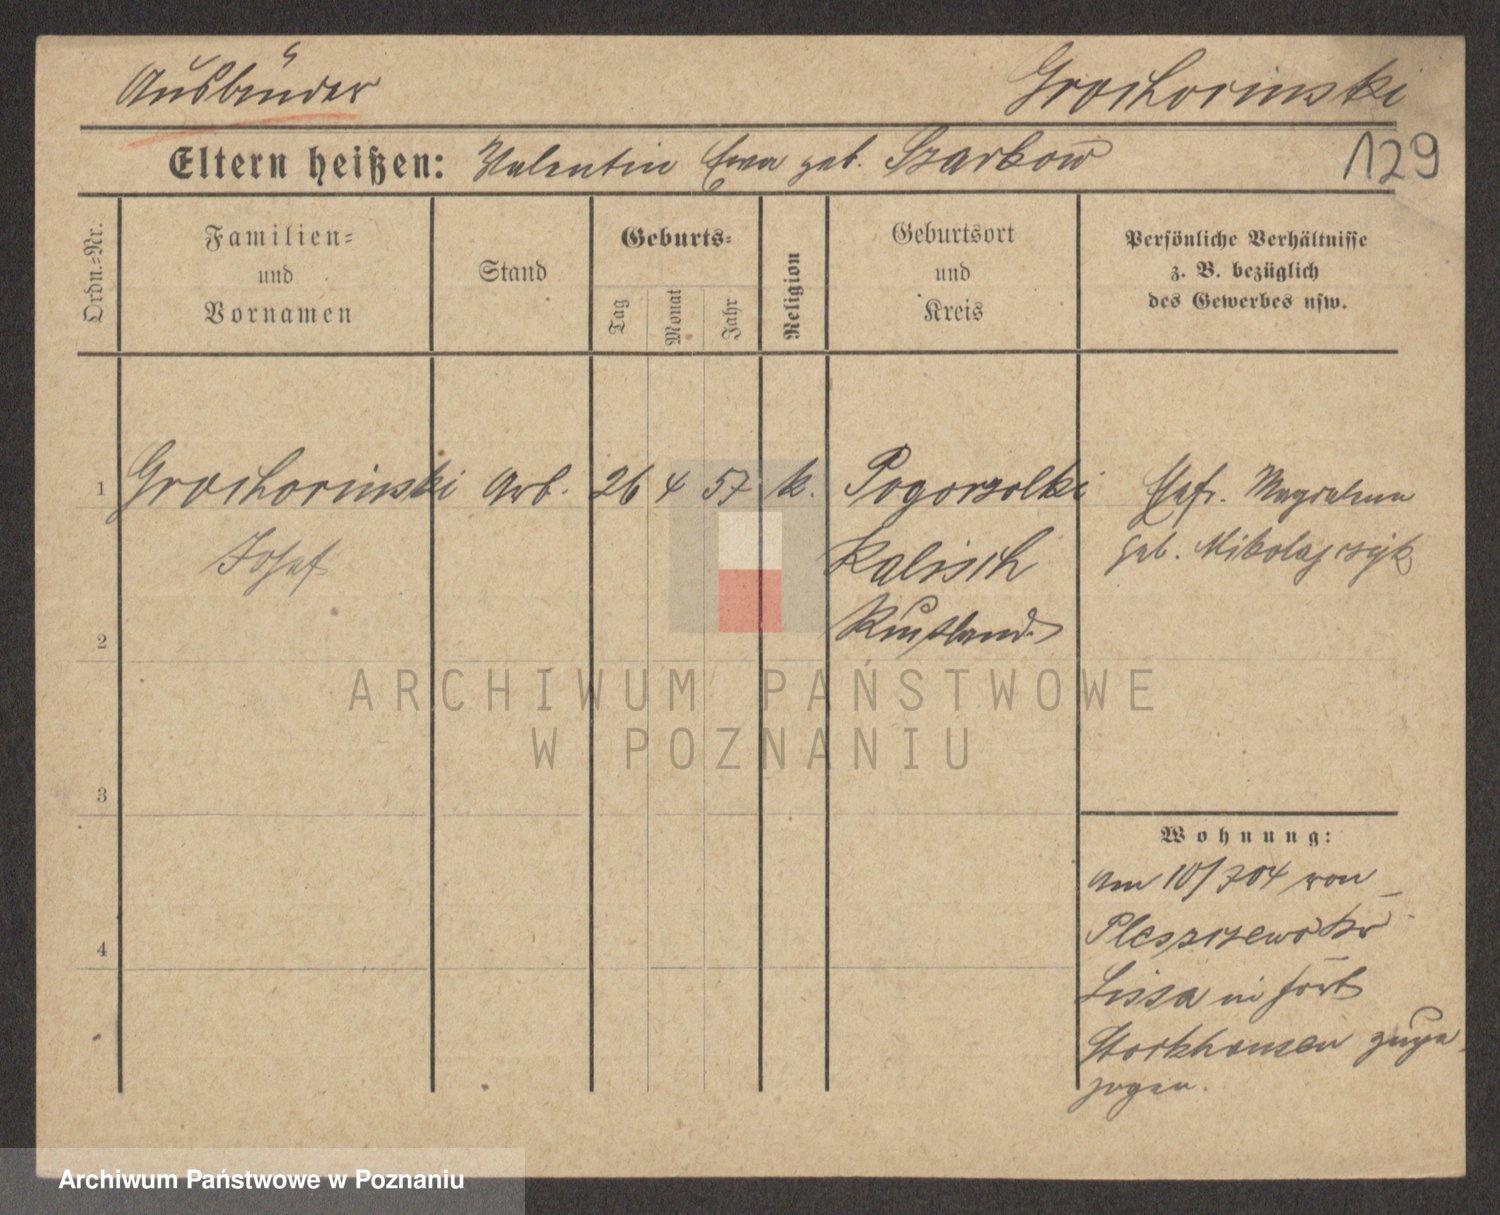 Ausländer
Grochorinski
129
Eltern heißen: Valentin Ewa geb. Szarkow
Ordn.=Nr.
Familien=
und
Vornamen
Stand
Geburts=
Tag
Monat
Jahr
Religion
Geburtsort
und
Kreis
Persönliche Verhältnisse
z. B. bezüglich
des Gewerbes usw.
1 Grochorinski Arb. 26 4 57 k. Pogorzolki Ehefr. Magdalena
Josef Kalisch geb. Mikolajczyk
Russland
2
3
4
Wohnung:
Am 10/7 04 von
Pleszczewo Kr
Lissa in fort
zuge
zogen.
ARCHIWUM PAŃSTWOWE
W POZNANIU
Archiwum Państwowe w Poznaniu